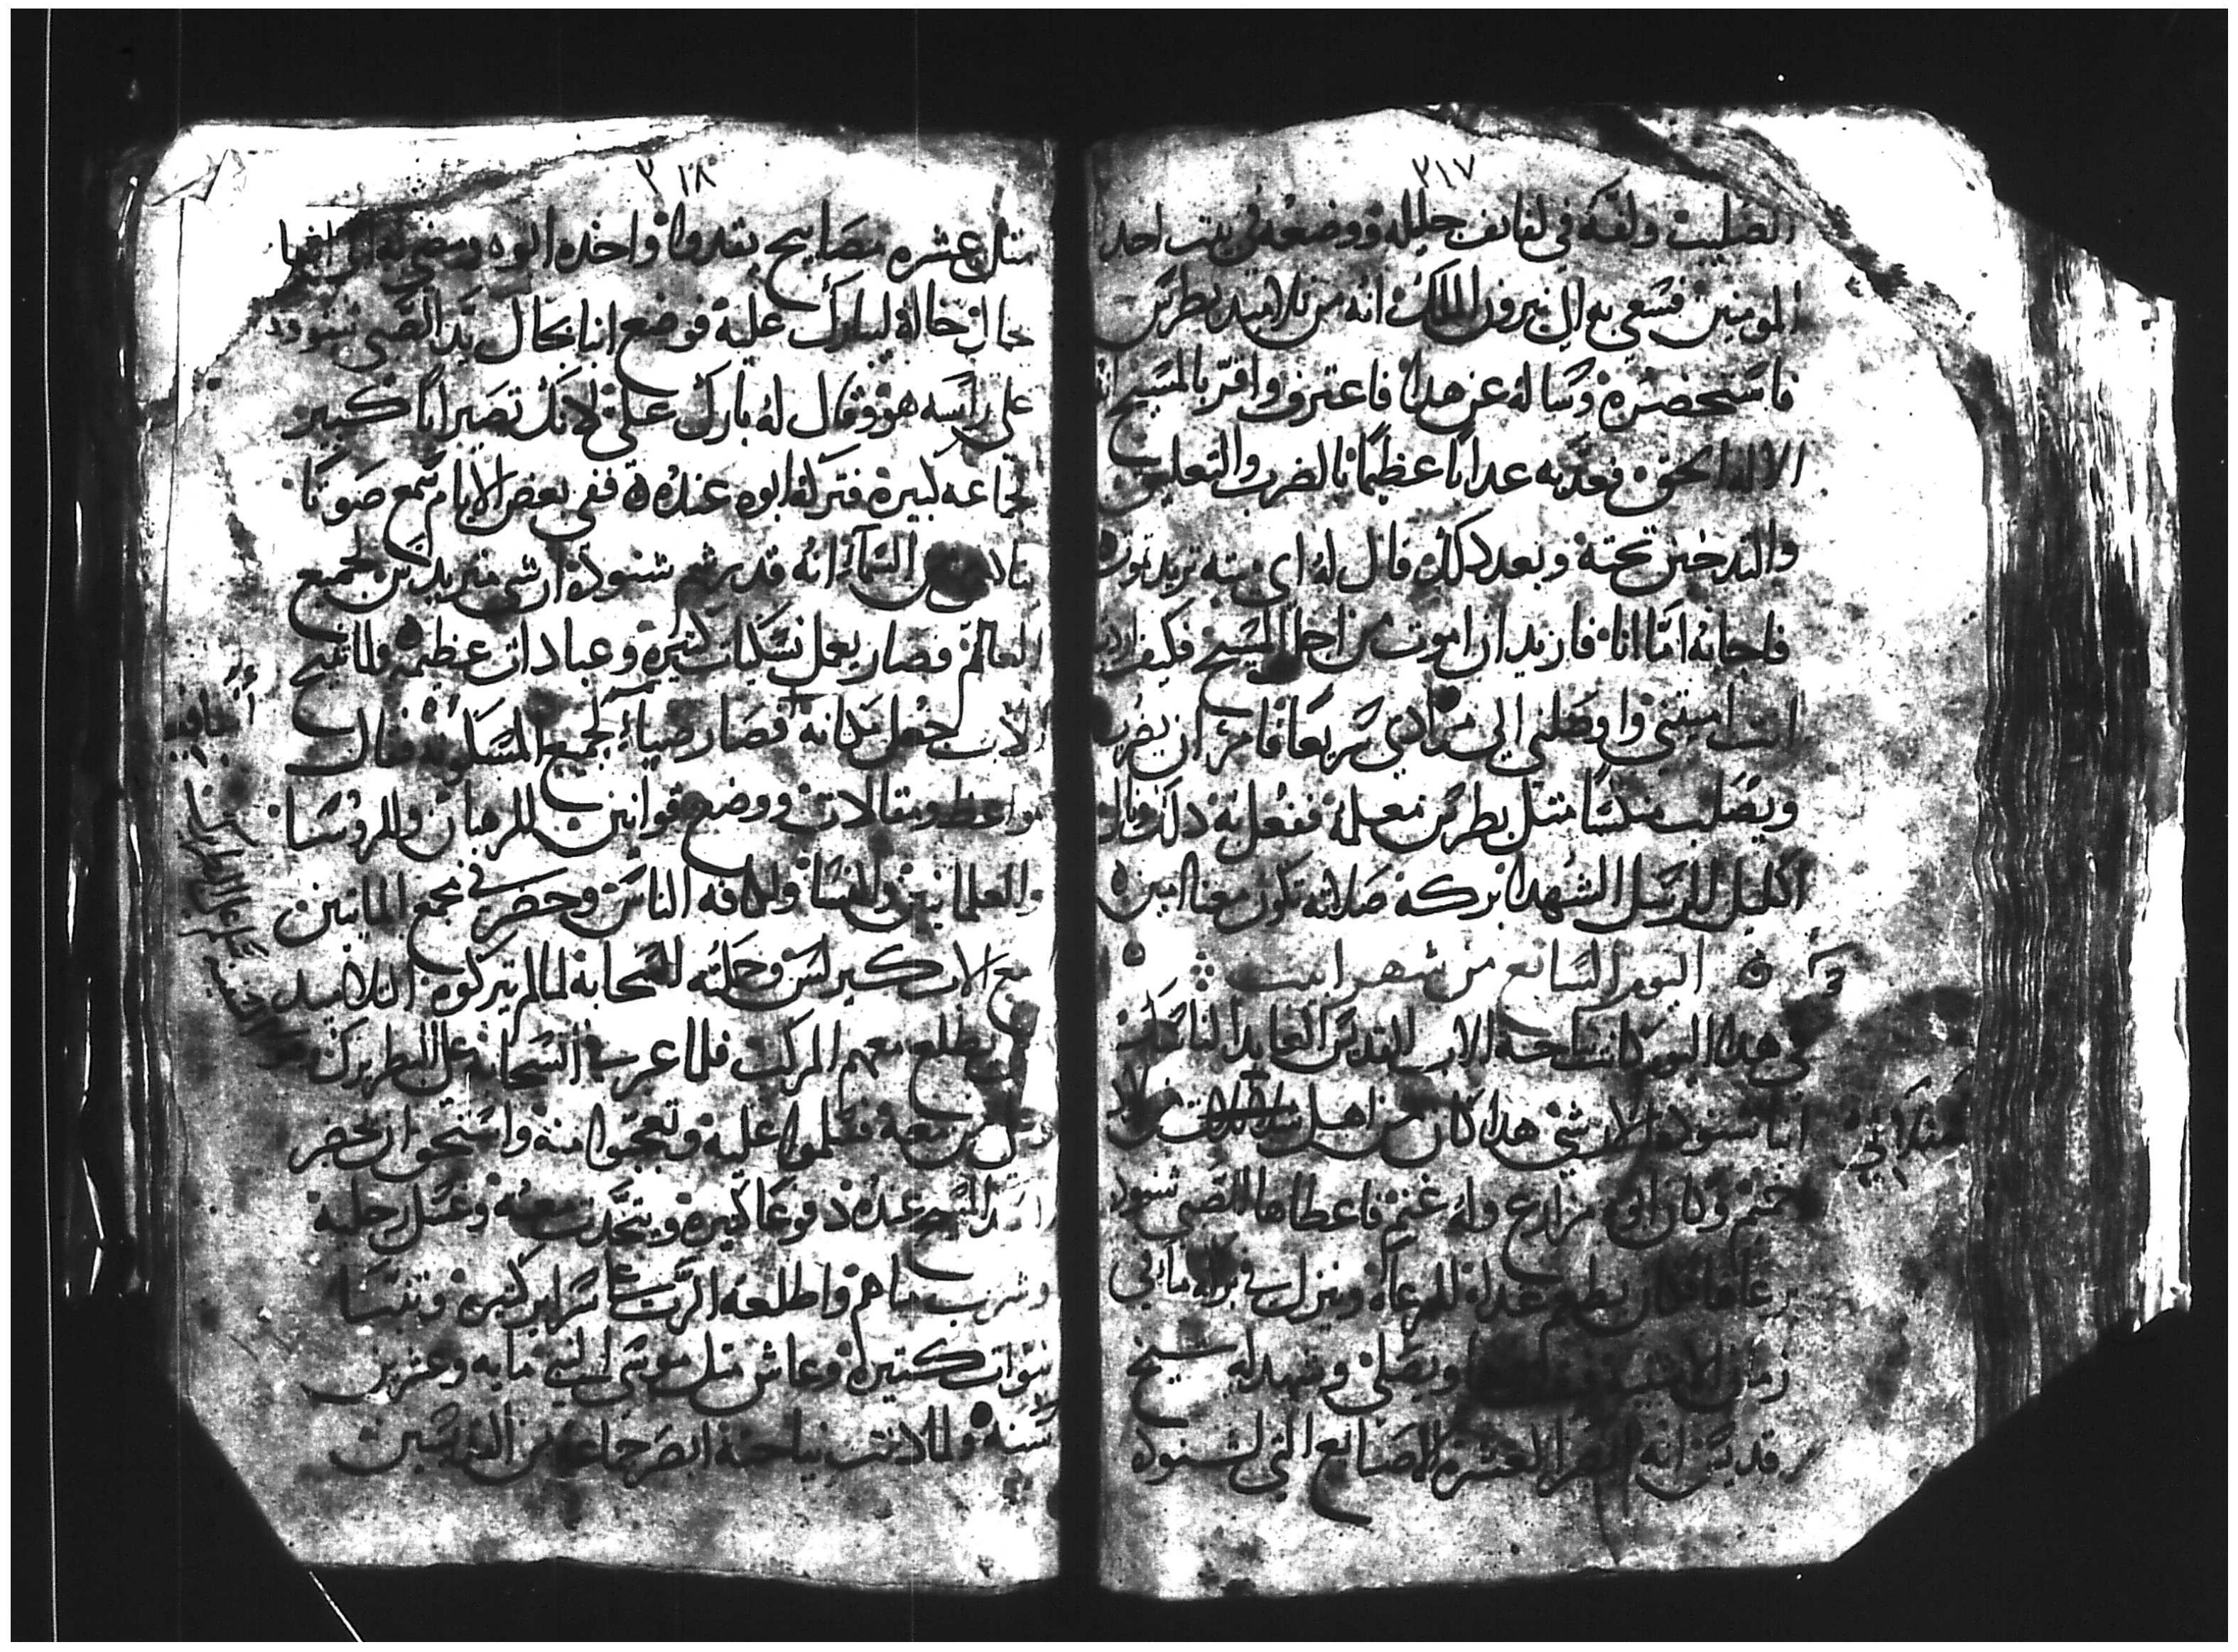 ٢١٧
الصليب ولفه في لفايف جليله ووضعه في بيت احد
المومنين فسعي به الي نيرون الملك انه من تلاميد بطرس
فاستحضره وساله عن هدا فاعترف واقر بالمسيح انه
الاله الحق فعدبه عدابا عظيما بالضرب والتعليق
والتدخين تحته وبعد دلك قال له اي ميته تريد تموت
فاجابه اما انا فاريد ان اموت من اجل المسيح فكيف اردت
انت اميتني واوصلني الي مرادي سريعا فامر ان يضرب
ويصلب منكسا متل بطرس معلمه ففعل به دلك ونال
اكليل الرسل الشهدا بركه صلاته تكون معنا امين
اليوم السابع من شهر ابيب
في هدا اليوم كانت نياحة الاب القديس العابد الناسك
انبا شنوده الارشي هدا كان من اهل
شندلاتي
اخميم وكان ابوه مزارع وله غنم فاعطاها للصبي شنوده
يرعاها فكان يطعم غداه للرعاه وينزل في بركه ماء في
زمان الشتا ويصلي وشهد له شيخ
قديس انه ابصر العشره الاصابع التي لشنوده
٢١٨
متل عشره مصابيح يقدوا واخده ابوه ومضي به الي انبا
بجال خاله ليبارك عليه فوضع انبا بجال يد الصبي شنوده
علي راسه هو وقال له بارك علي لانك تصير ابا كبير
لجماعه كبيره فتركه ابوه عنده ففي بعض الايام سمع صوتا
من السما انه قد رسم شنوده ارشي مندريدس لجميع
العالم فصار يعمل نسكيات كتيره وعبادات عظيمه ولما تنيح
الاب جعل مكانه فصار ضياء لجميع المسكونه فقال
مواعظ ومقالات ووضع قوانين للرهبان وللروسا
والعلمانيين والنسا ولكافه الناس وحضر في مجمع المايتين
مع الاب كيرلس وحملته السحابه لما لم يتركوه التلاميد
يطلع معهم المركب فلما عبرت السحابه علي البطريرك
معه فسلموا عليه وتعجبوا منه واستحق ان يحضر
السيد المسيح عنده دفوعا كتيره ويتحدت معه وغسل رجليه
وشرب ماهم واطلعه الرب علي سراير كتيره وتنبا
نبوات كتيره وعاش متل موسي النبي مايه وعشرين
سنه ولما دنت نياحته ابصر جماعه من القديسين